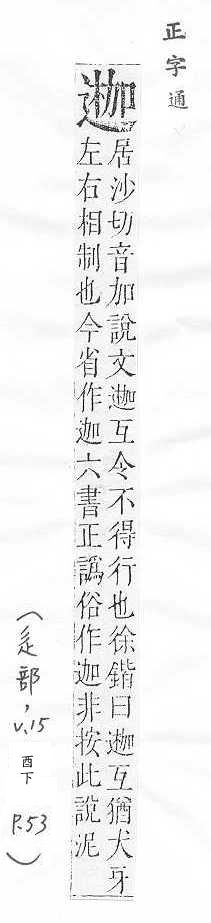 正字通
⿺辶枷
居沙切音加說文⿺辶枷互令不得行也徐鍇曰⿺辶枷互猶犬牙
左右相制也今省作迦六書正譌俗作迦非按此說泥
(辵部, v.15 酉下 P.53)